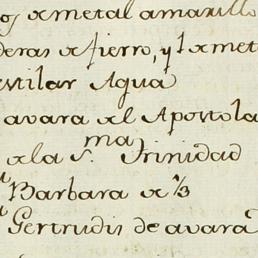 xmetal amarillo
deras xfierro, y 1 xmet
estilar Agua
avara xl Apostola
xla S.ma Trinidad
Barbara x 1/3
Gertrudis de avara